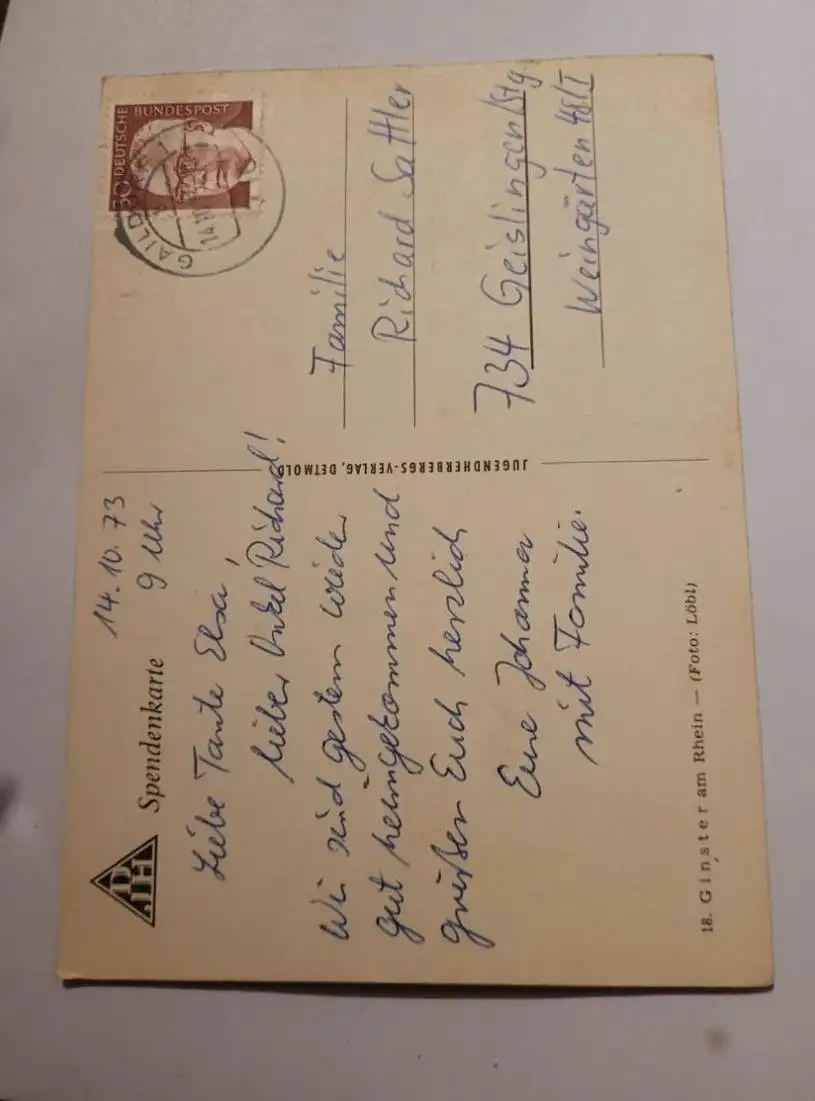 DJH
Spendenkarte
14.10.73
9 Uhr
Liebe Tante Elsa,
lieber Onkel Richard!
Wir sind gestern wieder
gut heimgekommen und
grüßen Euch herzlich
Eure Johanna
mit Familie.
18. Ginster am Rhein — (Foto: Löbl)
JUGENDHERBERGS-VERLAG, DETMOLD
30 DEUTSCHE BUNDESPOST
GAILDORF 1
14.10
Familie
Richard Sattler
734 Geislingen/Stg
Weingärten 48/I